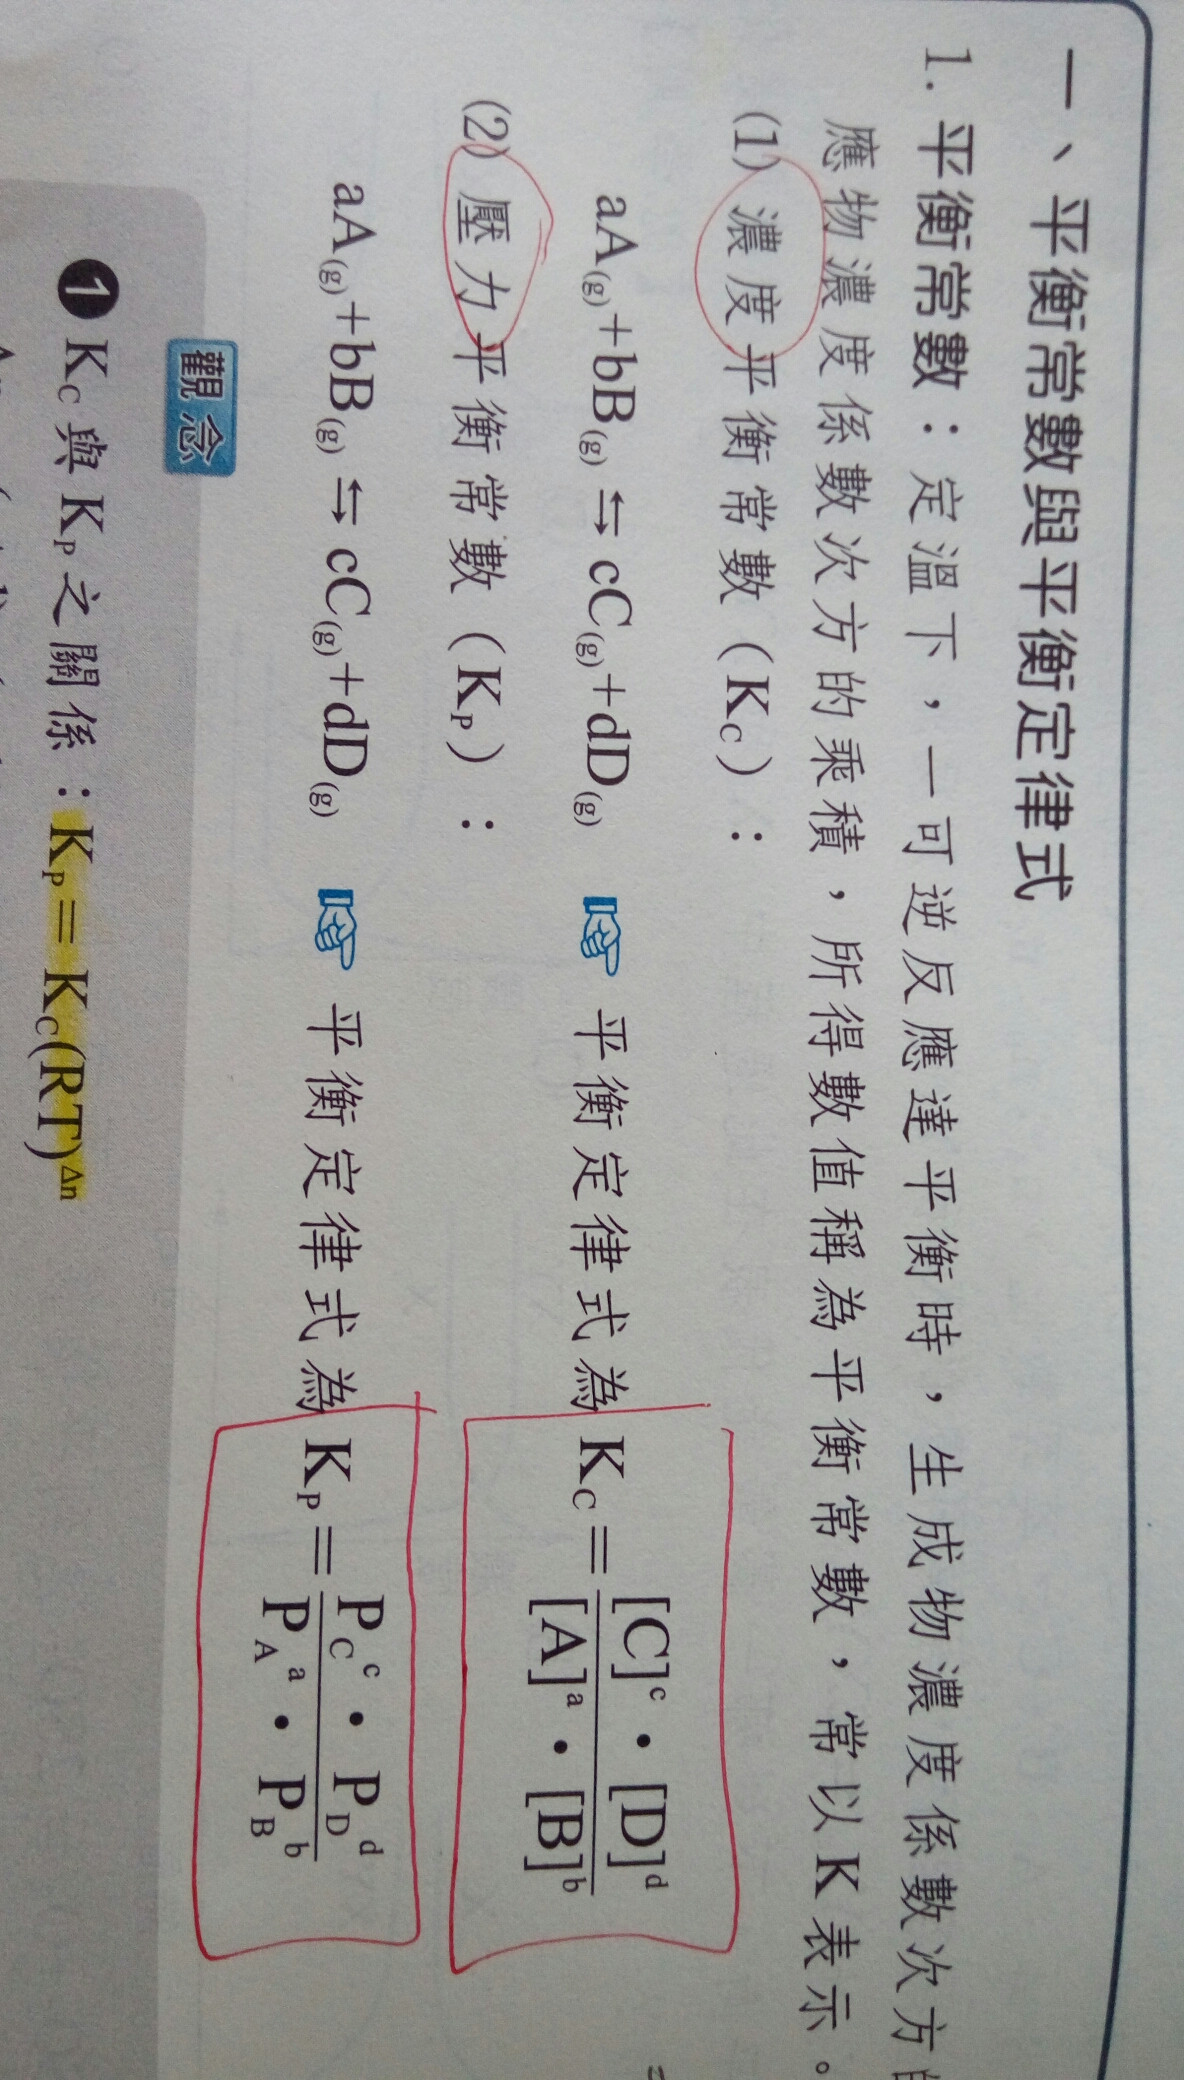 一、平衡常數與平衡定律式
1. 平衡常數：定溫下，一可逆反應達平衡時，生成物濃度係數次方的
應物濃度係數次方的乘積，所得數值稱為平衡常數，常以K表示。
(1) 濃度平衡常數（K_C）：
aA(g)+bB(g)⇆cC(g)+dD(g) ☞ 平衡定律式為 K_C=[C]^c·[D]^d/[A]^a·[B]^b
(2) 壓力平衡常數（K_P）：
aA(g)+bB(g)⇆cC(g)+dD(g) ☞ 平衡定律式為 K_P=P_C^c·P_D^d/P_A^a·P_B^b
觀念
❶ K_C與K_P之關係：K_P=K_C(RT)^Δn